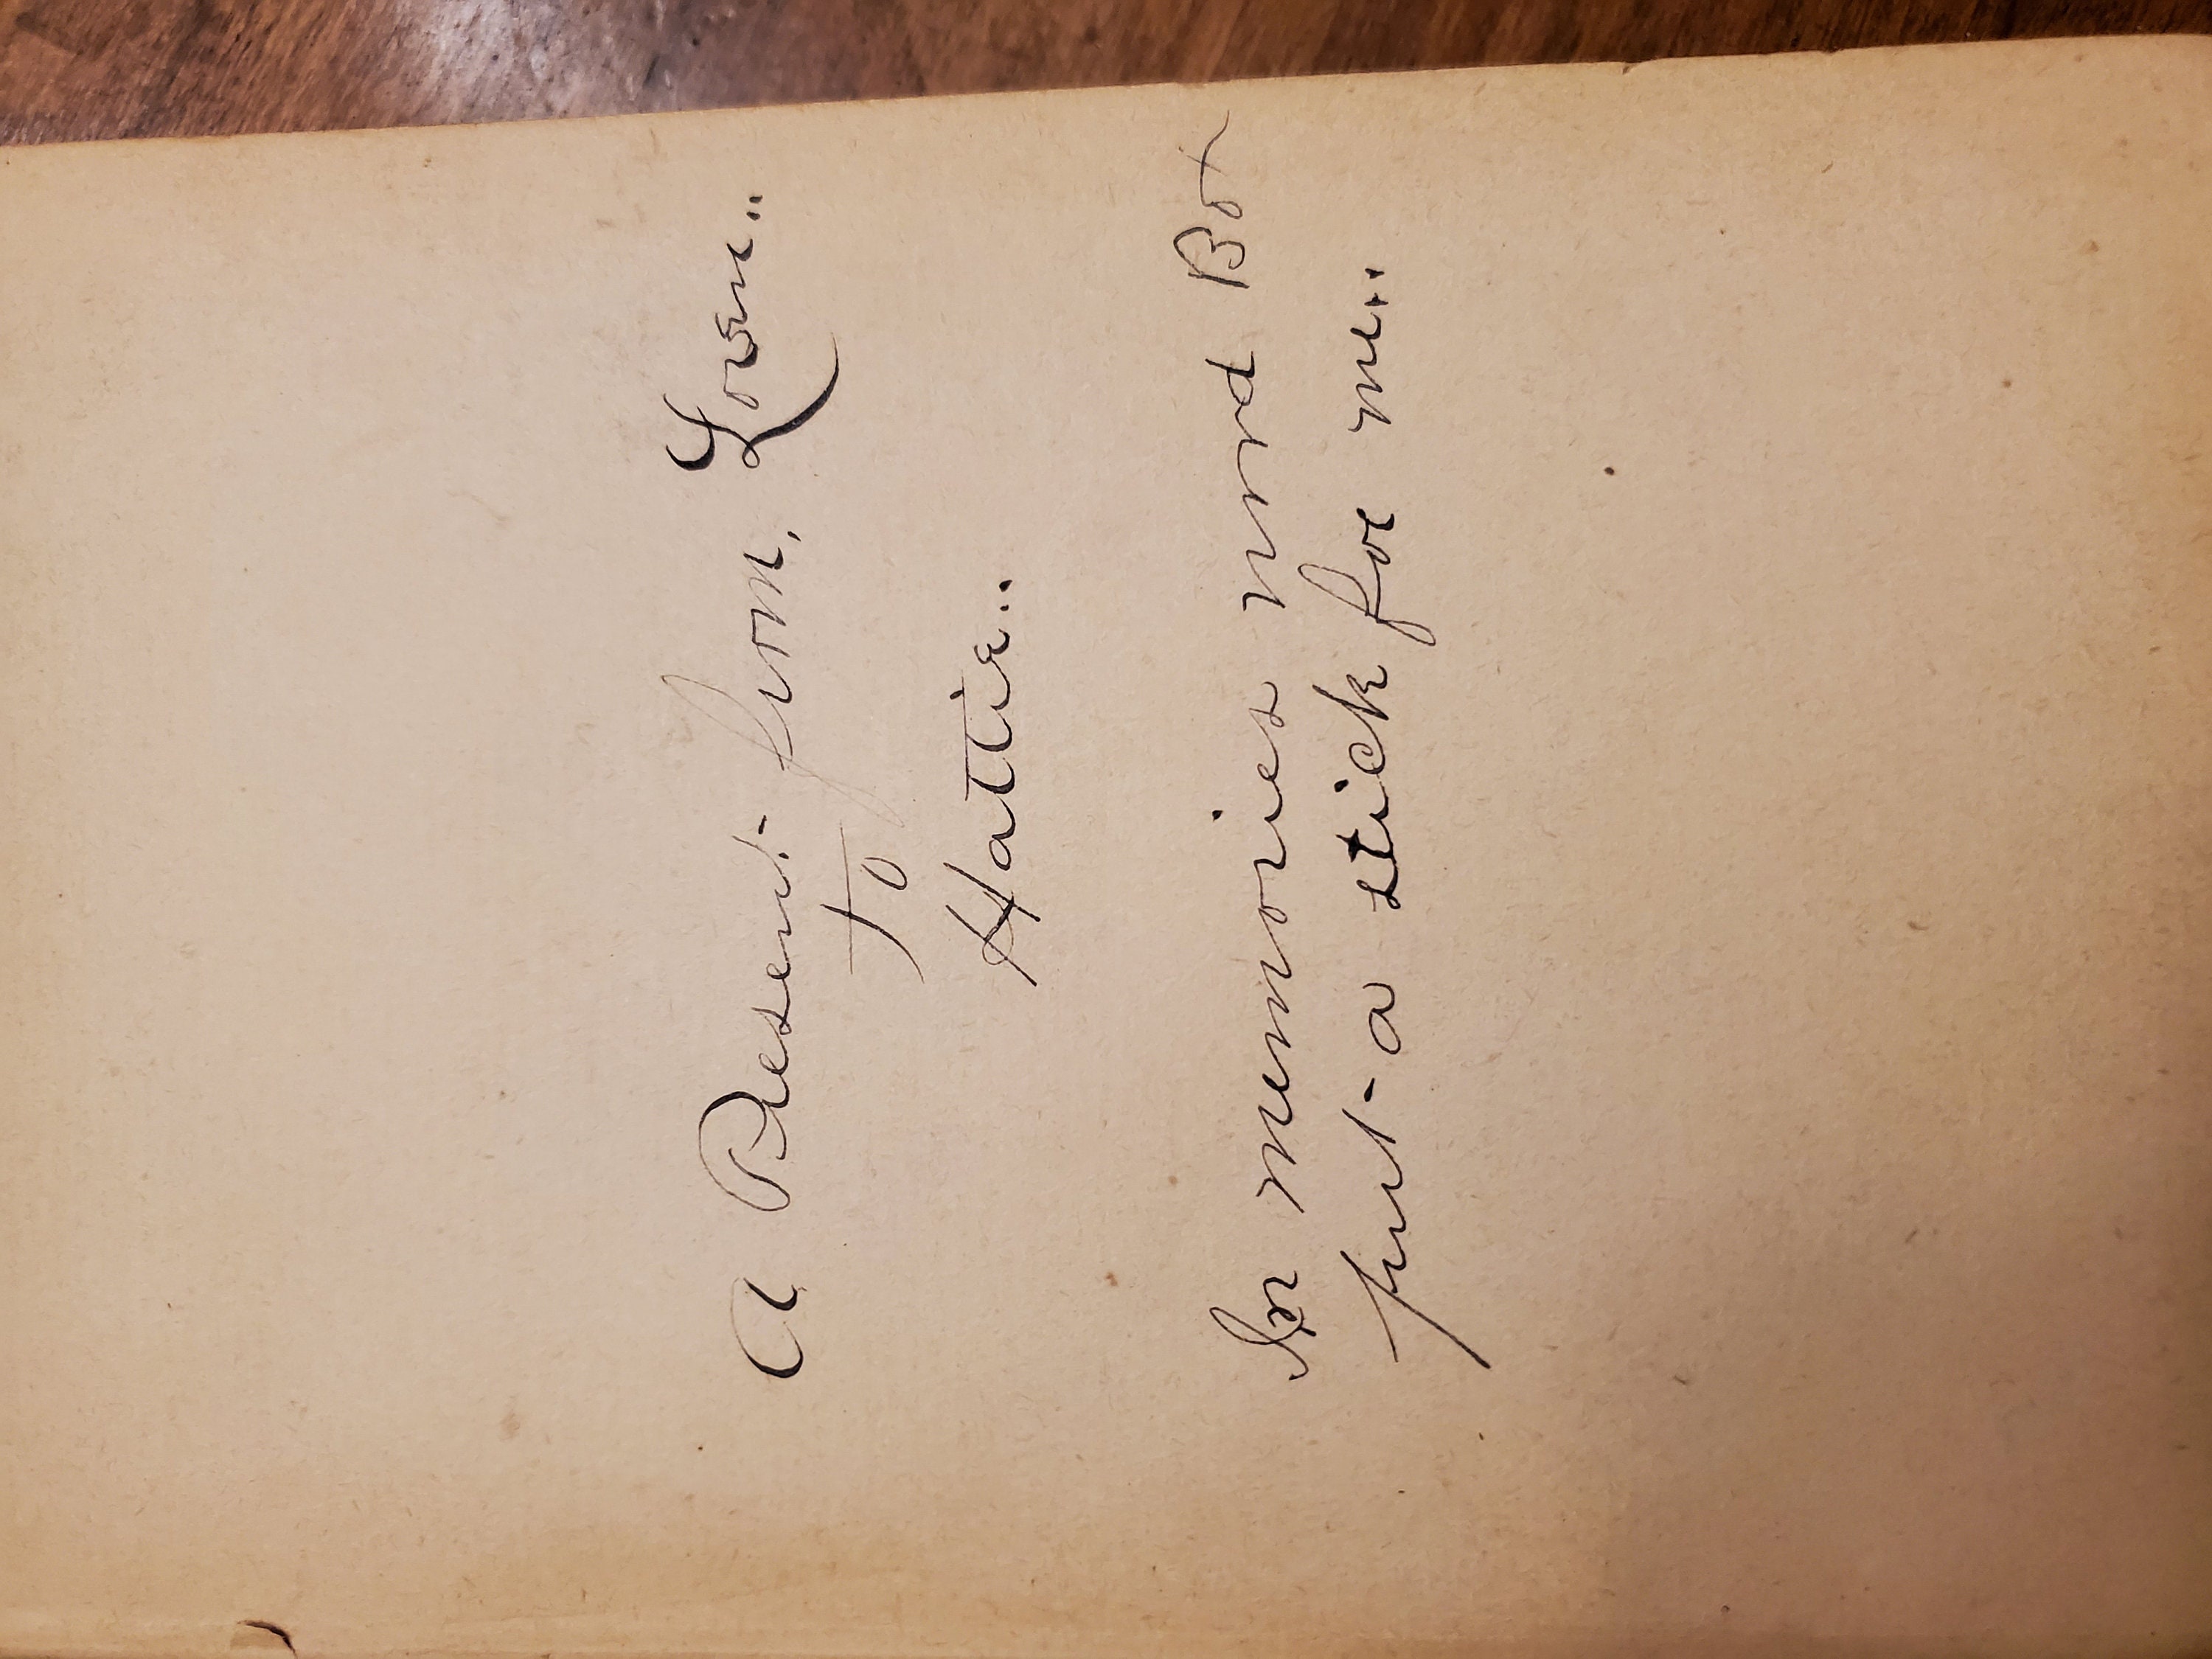 A Present- from, Loren..
To
Hattie..
In memories wood Box
put-a stick for me..